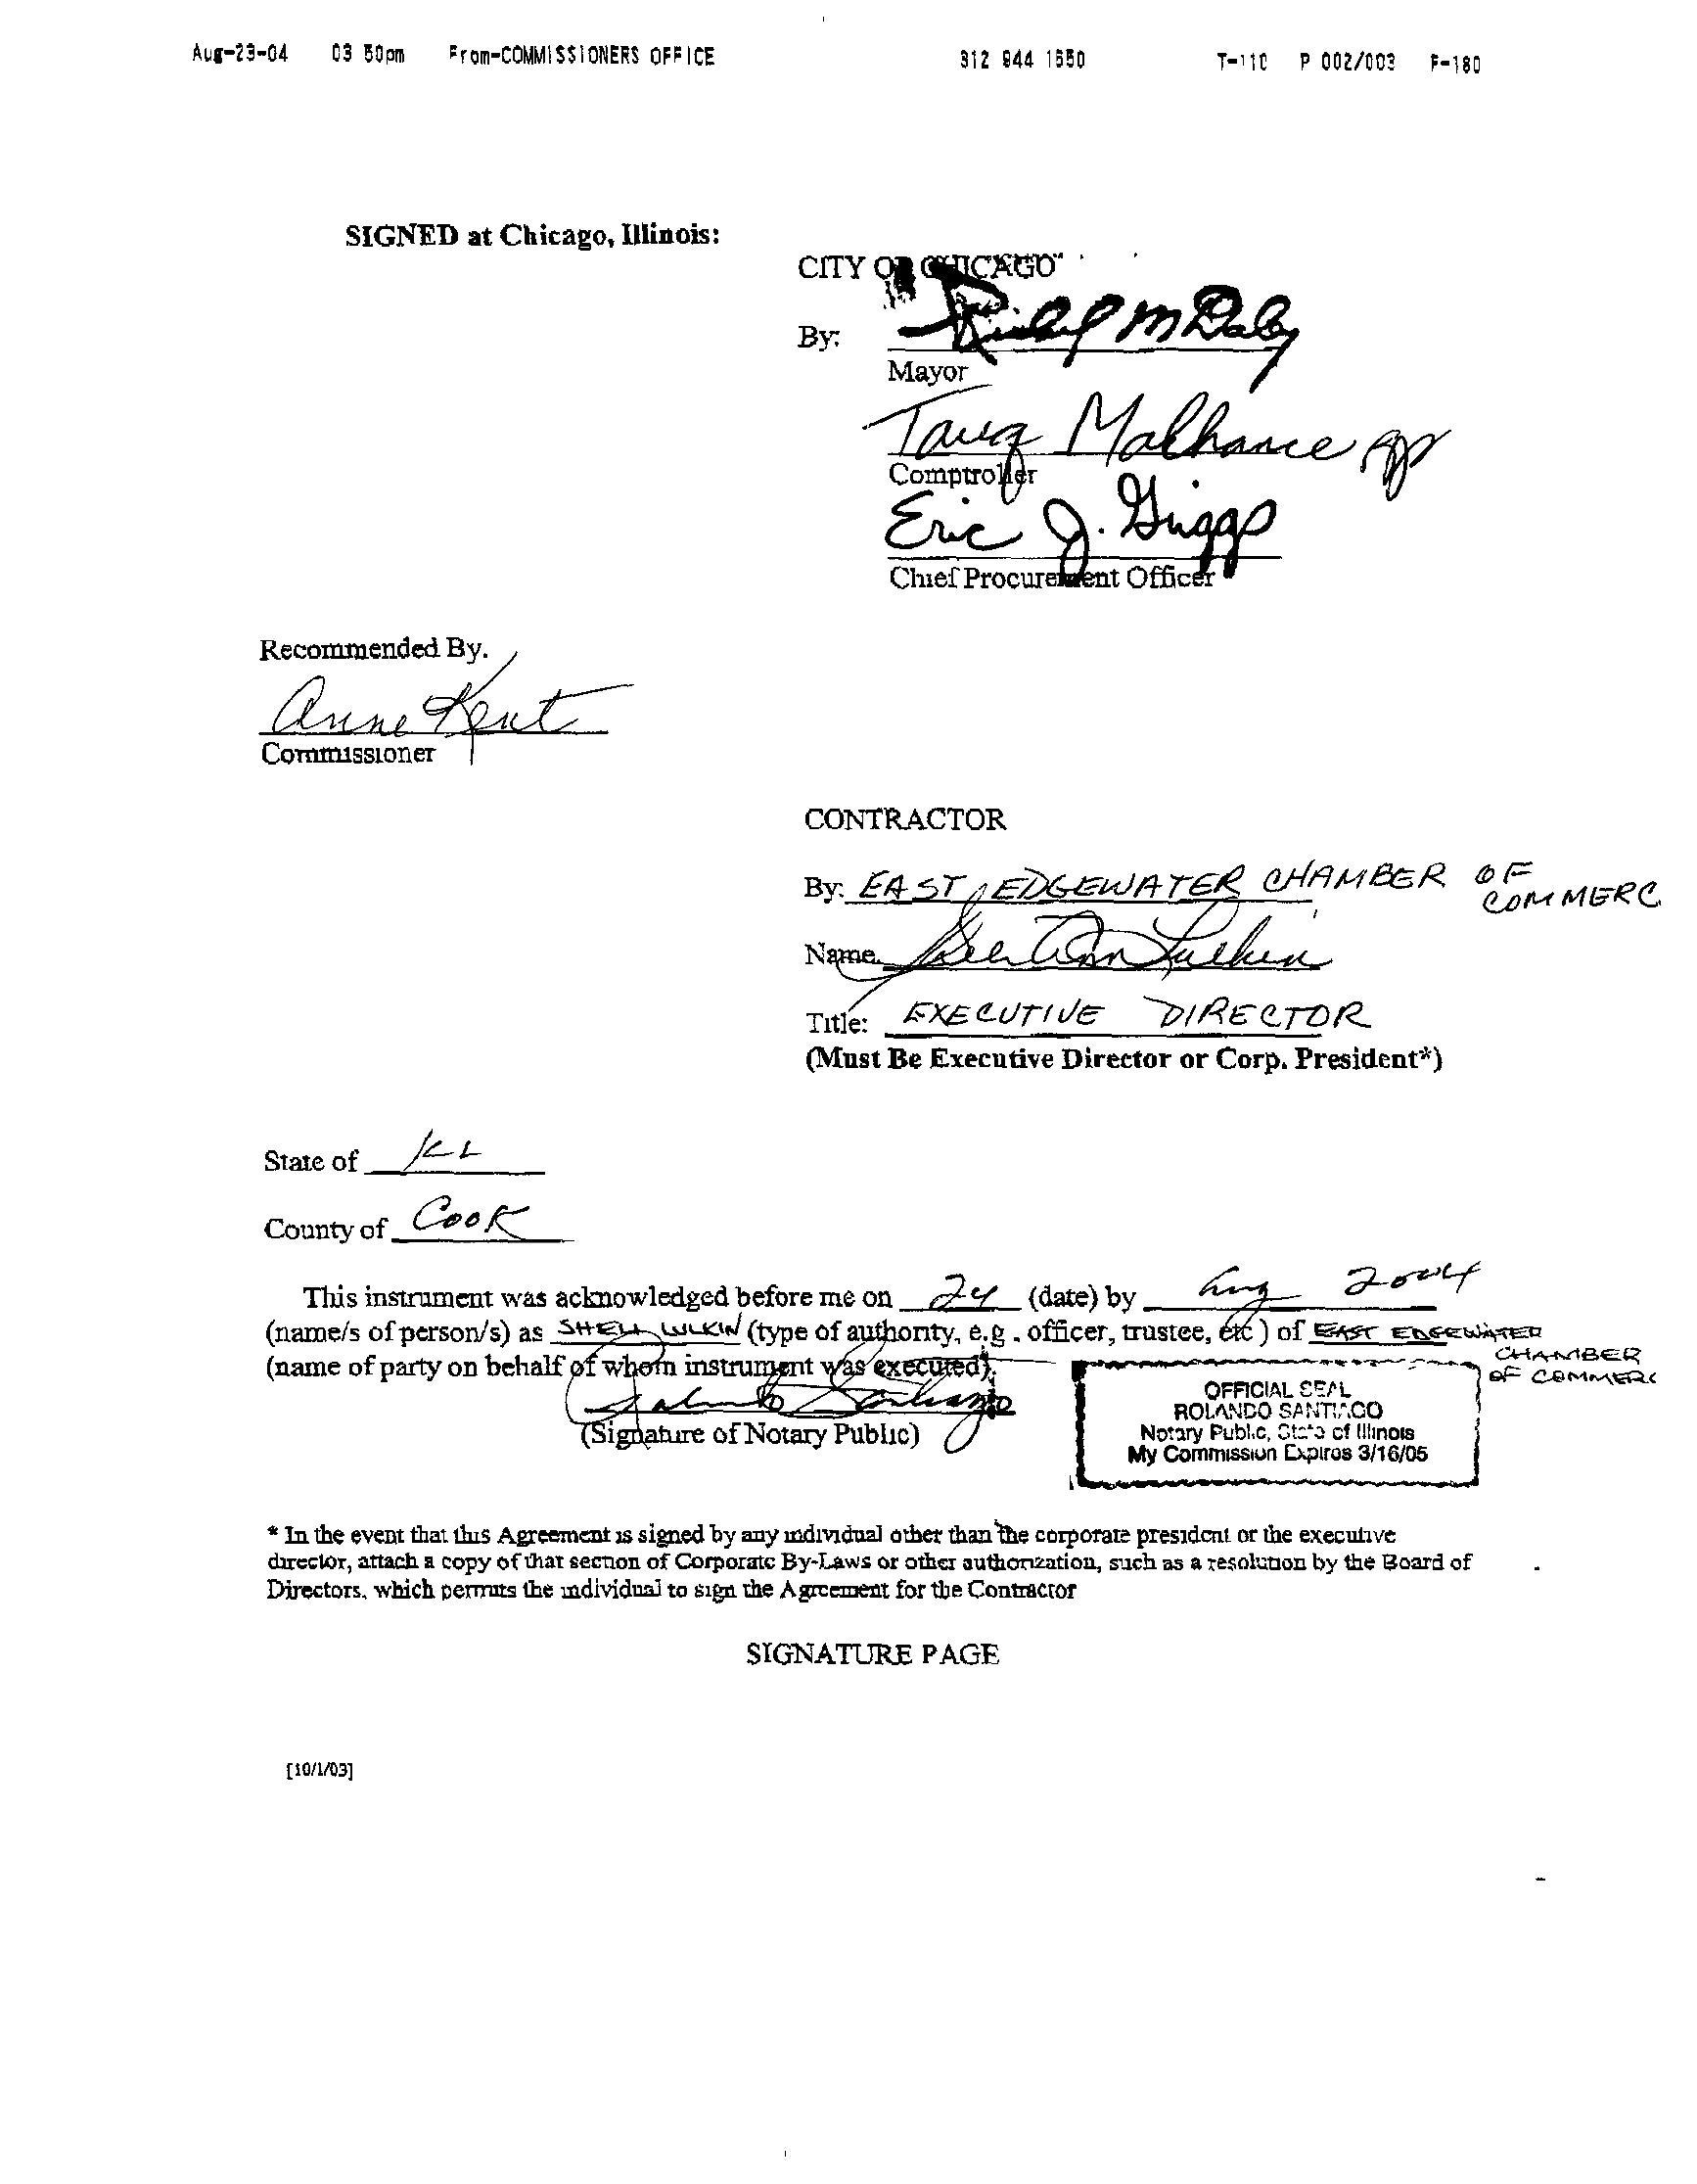 Aug-23-04 03 50pm From-COMMISSIONERS OFFICE 312 944 1550 T-110 P 002/003 F-180
SIGNED at Chicago, Illinois:
CITY OF CHICAGO
By: Richard M Daley
Mayor
Tariq Malhance
Comptroller
Eric J. Griggs
Chief Procurement Officer
Recommended By.
Anne Kent
Commissioner
CONTRACTOR
By: EAST EDGEWATER CHAMBER OF
COMMERC
Name
Title: EXECUTIVE DIRECTOR
(Must Be Executive Director or Corp. President*)
State of ICL
County of Cook
This instrument was acknowledged before me on 24 (date) by Aug 2004
(name/s of person/s) as SHELI LULKIN (type of authority, e.g. officer, trustee, etc) of EAST EDGEWATER
CHAMBER
(name of party on behalf of whom instrument was executed).
OF COMMERC
(Signature of Notary Public)
OFFICIAL SEAL
ROLANDO SANTIAGO
Notary Public, State of Illinois
My Commission Expires 3/16/05
* In the event that this Agreement is signed by any individual other than the corporate president or the executive
director, attach a copy of that section of Corporate By-Laws or other authorization, such as a resolution by the Board of
Directors, which permits the individual to sign the Agreement for the Contractor
SIGNATURE PAGE
[10/1/03]